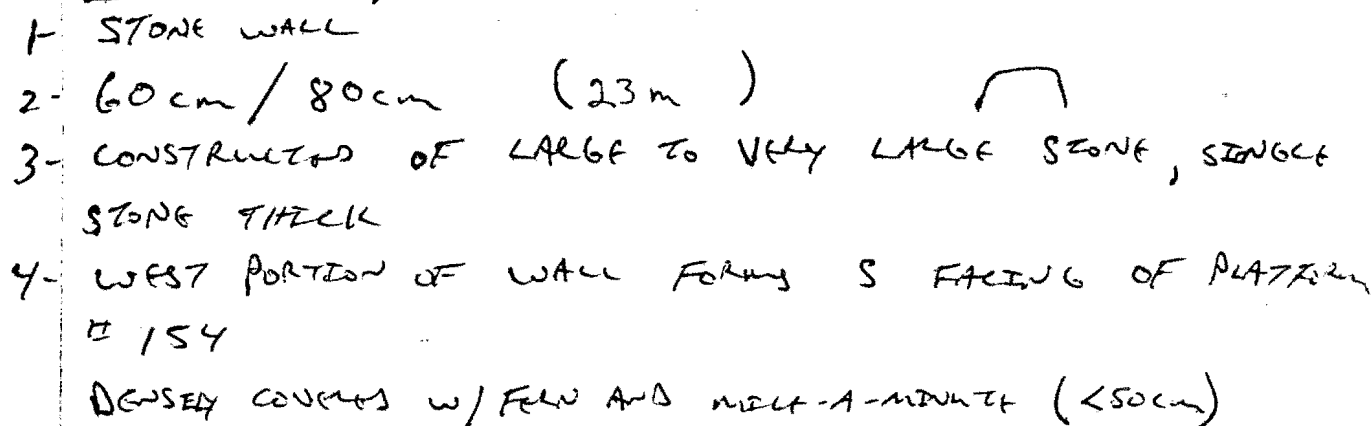 1- STONE WALL
2- 60cm / 80cm (23m )
3- CONSTRUCTED OF LARGE TO VERY LARGE STONE, SINGLE
STONE THICK
4- WEST PORTION OF WALL FORMS S FACING OF PLATFORM
# 154
DENSELY COVERED w/ FERN AND MILE-A-MINUTE (<50cm)